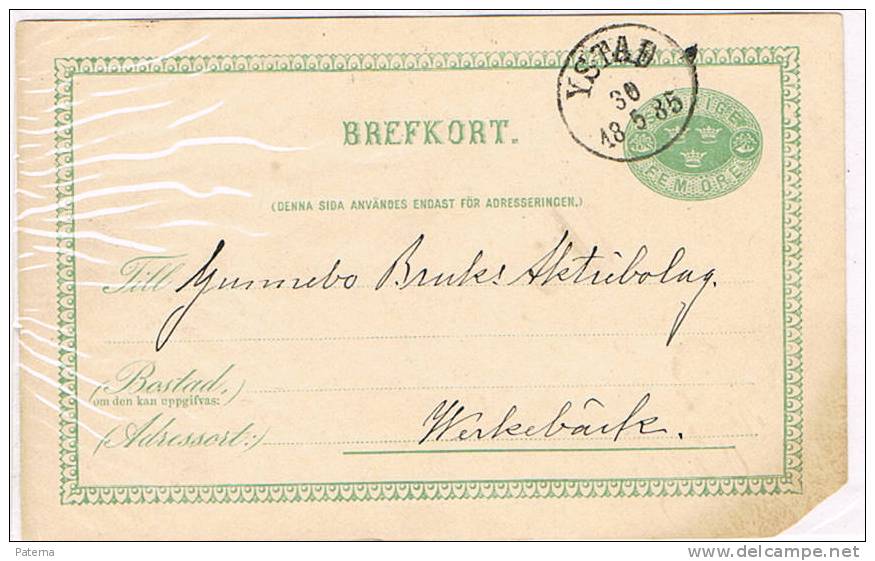 YSTAD
30
18 5 85
SVERIGE
FEM ÖRE
BREFKORT.
(DENNA SIDA ANVÄNDES ENDAST FÖR ADRESSERINGEN.)
Till Gunnebo Bruks Aktiebolag.
(Bostad,
om den kan uppgifvas:)
(Adressort:)
Werkebäck.
Paterna
www.delcampe.net